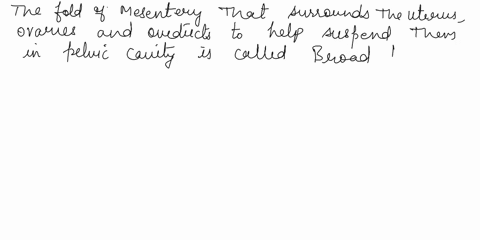 The fold of Mesentery That surrounds The uterus,
ovaries and oviducts to help suspend Them
in pelvic cavity is called Broad l